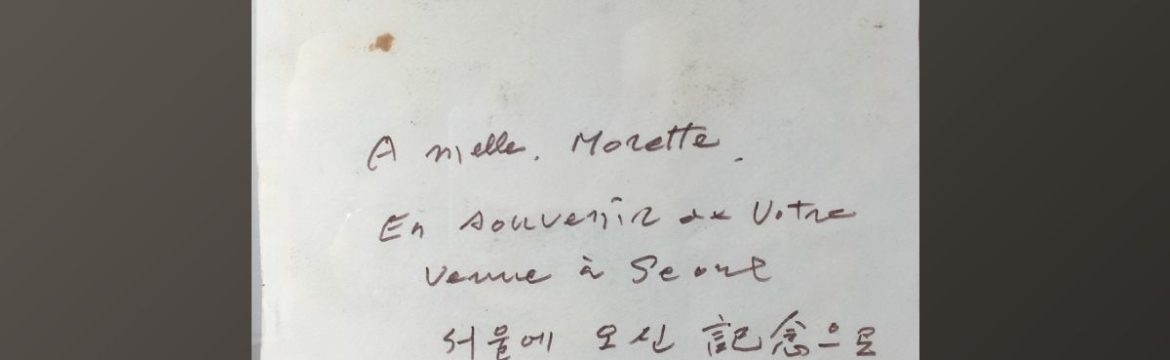 A Melle. Morette.
En souvenir de Votre
Venue à Seoul
서울에 오신 記念으로